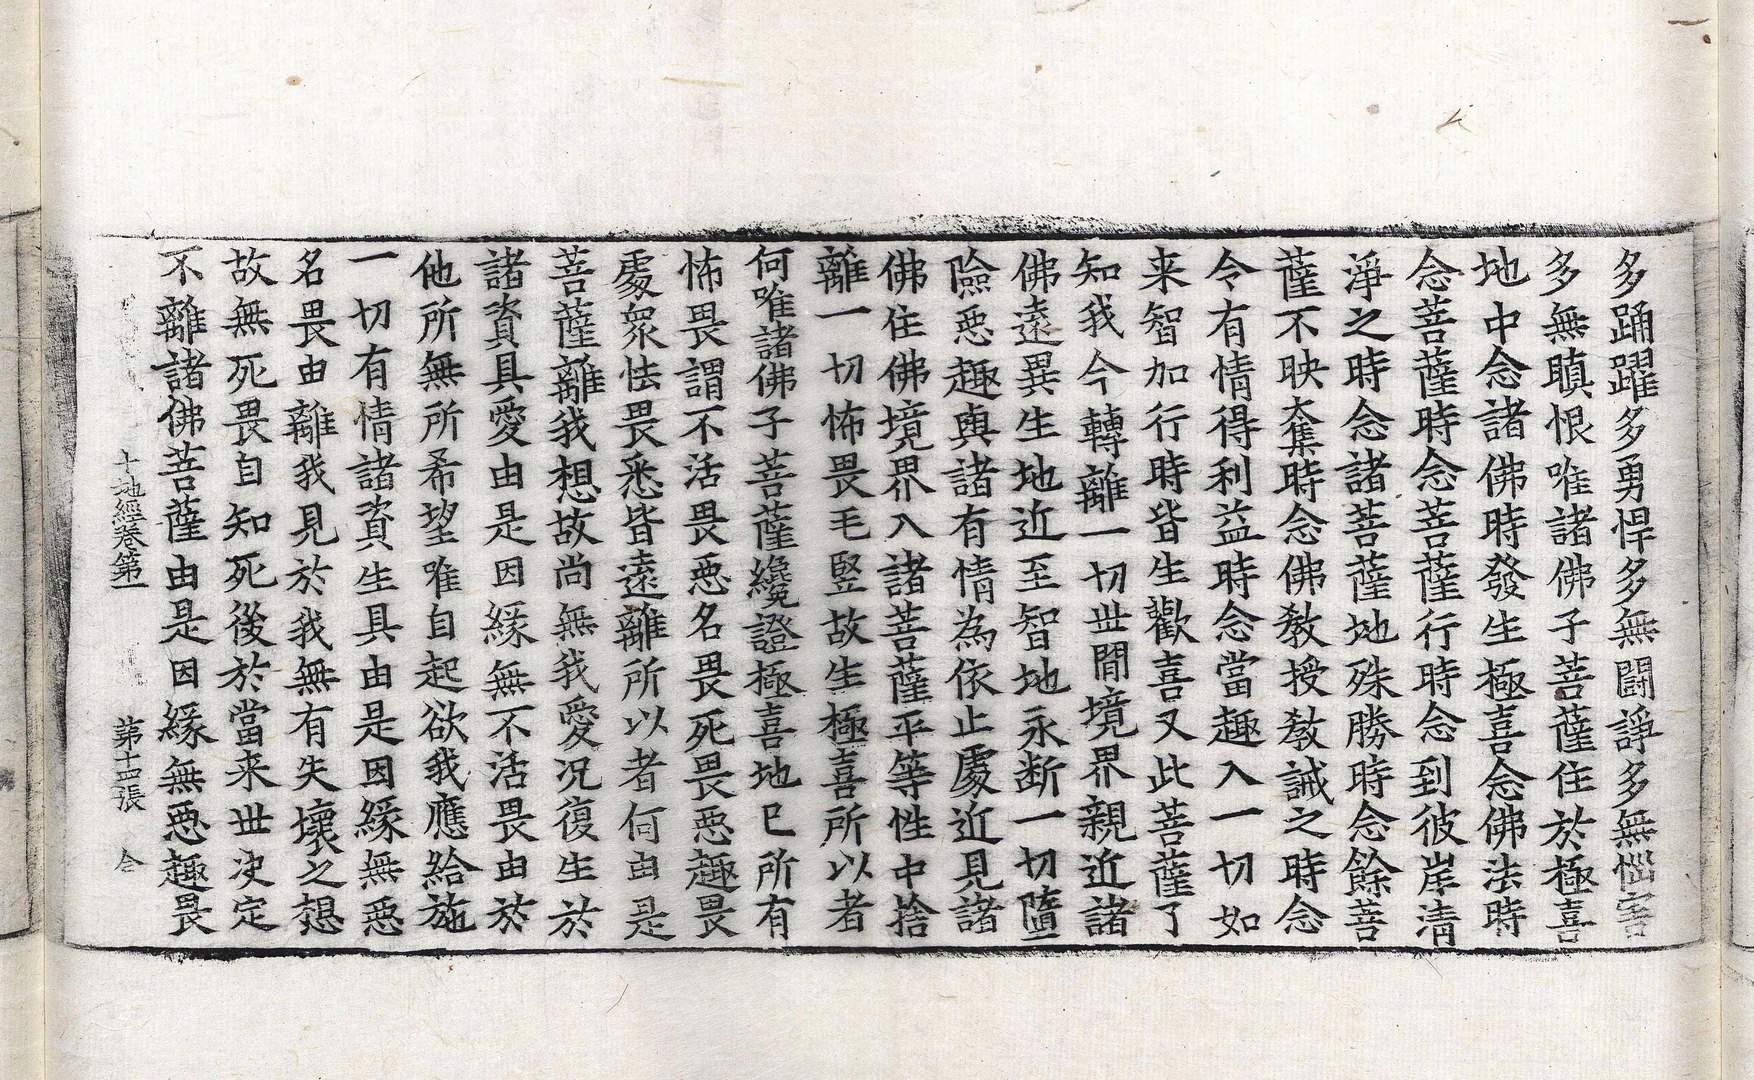 多踊躍多勇悍多無鬪諍多無惱害
多無瞋恨唯諸佛子菩薩住於極喜
地中念諸佛時發生極喜念佛法時
念菩薩時念菩薩行時念到彼岸清
淨之時念諸菩薩地殊勝時念餘菩
薩不映奪時念佛教授教誡之時念
令有情得利益時念當趣入一切如
来智加行時皆生歡喜又此菩薩了
知我今轉離一切世間境界親近諸
佛遠異生地近至智地永断一切墮
險惡趣與諸有情為依止處近見諸
佛住佛境界入諸菩薩平等性中捨
離一切怖畏毛竪故生極喜所以者
何唯諸佛子菩薩纔證極喜地已所有
怖畏謂不活畏惡名畏死畏惡趣畏
處衆怯畏悉皆遠離所以者何由是
菩薩離我想故尚無我愛况復生於
諸資具愛由是因緣無不活畏由於
他所無所希望唯自起欲我應給施
一切有情諸資生具由是因緣無惡
名畏由離我見於我無有失壞之想
故無死畏自知死後於當来世决定
不離諸佛菩薩由是因緣無惡趣畏
十地經卷第一 第十四張 㑒